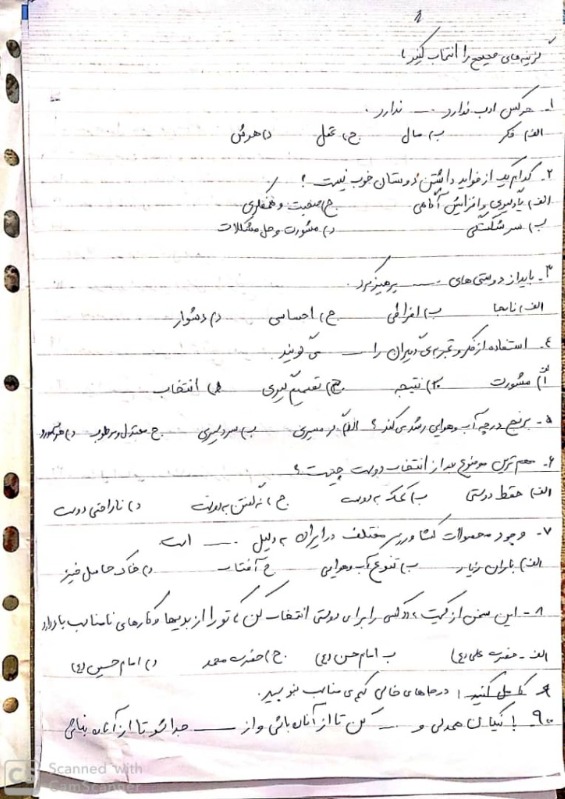 گزینه‌های صحیح را انتخاب کنید
۱- هر کس ادب ندارد ... ندارد.
الف) فکر ب) مال ج) عقل د) هوش
۲- کدام یک از فواید داشتن دوستان خوب نیست؟
الف) یادگیری و افزایش آگاهی ج) صحبت و همفکری
ب) سرشکستگی د) مشورت و حل مشکلات
۳- باید از دوستی‌های ... پرهیز کرد.
الف) نابجا ب) افراطی ج) احساسی د) دشوار
٤- استفاده از فکر و تجربه‌ی دیگران را ... می گویند
الف) مشورت ب) نتیجه ج) تصمیم گیری د) انتخاب
۵- برنج در چه آب و هوایی رشد می کند؟ الف) گرمسیری ب) سردسیری ج) معتدل و مرطوب د)
۶- مهم ترین موضوع بعد از انتخاب دوست چیست؟
الف) حفظ دوستی ب) کمک به دوست ج) نه گفتن به دوست د) ناراحتی دوست
۷- وجود محصولات کشاورزی مختلف در ایران به دلیل ... است
الف) باران زیاد ب) تنوع آب و هوایی ج) آفتاب د) خاک حاصل خیز
۸- این سخن از کیست؟ «کسی را برای دوستی انتخاب کن که تو را از بدیها و کارهای نامناسب باز دارد
الف- حضرت علی (ع) ب) امام حسن (ع) ج) حضرت محمد د) امام حسین (ع)
کامل کنید؛ در جاهای خالی کلمه‌ی مناسب بنویسید.
۹- با نیکان همدلی و ... کن تا از آنان باشی و از ... جدا شو تا از آنان نباشی
Scanned with
CamScanner